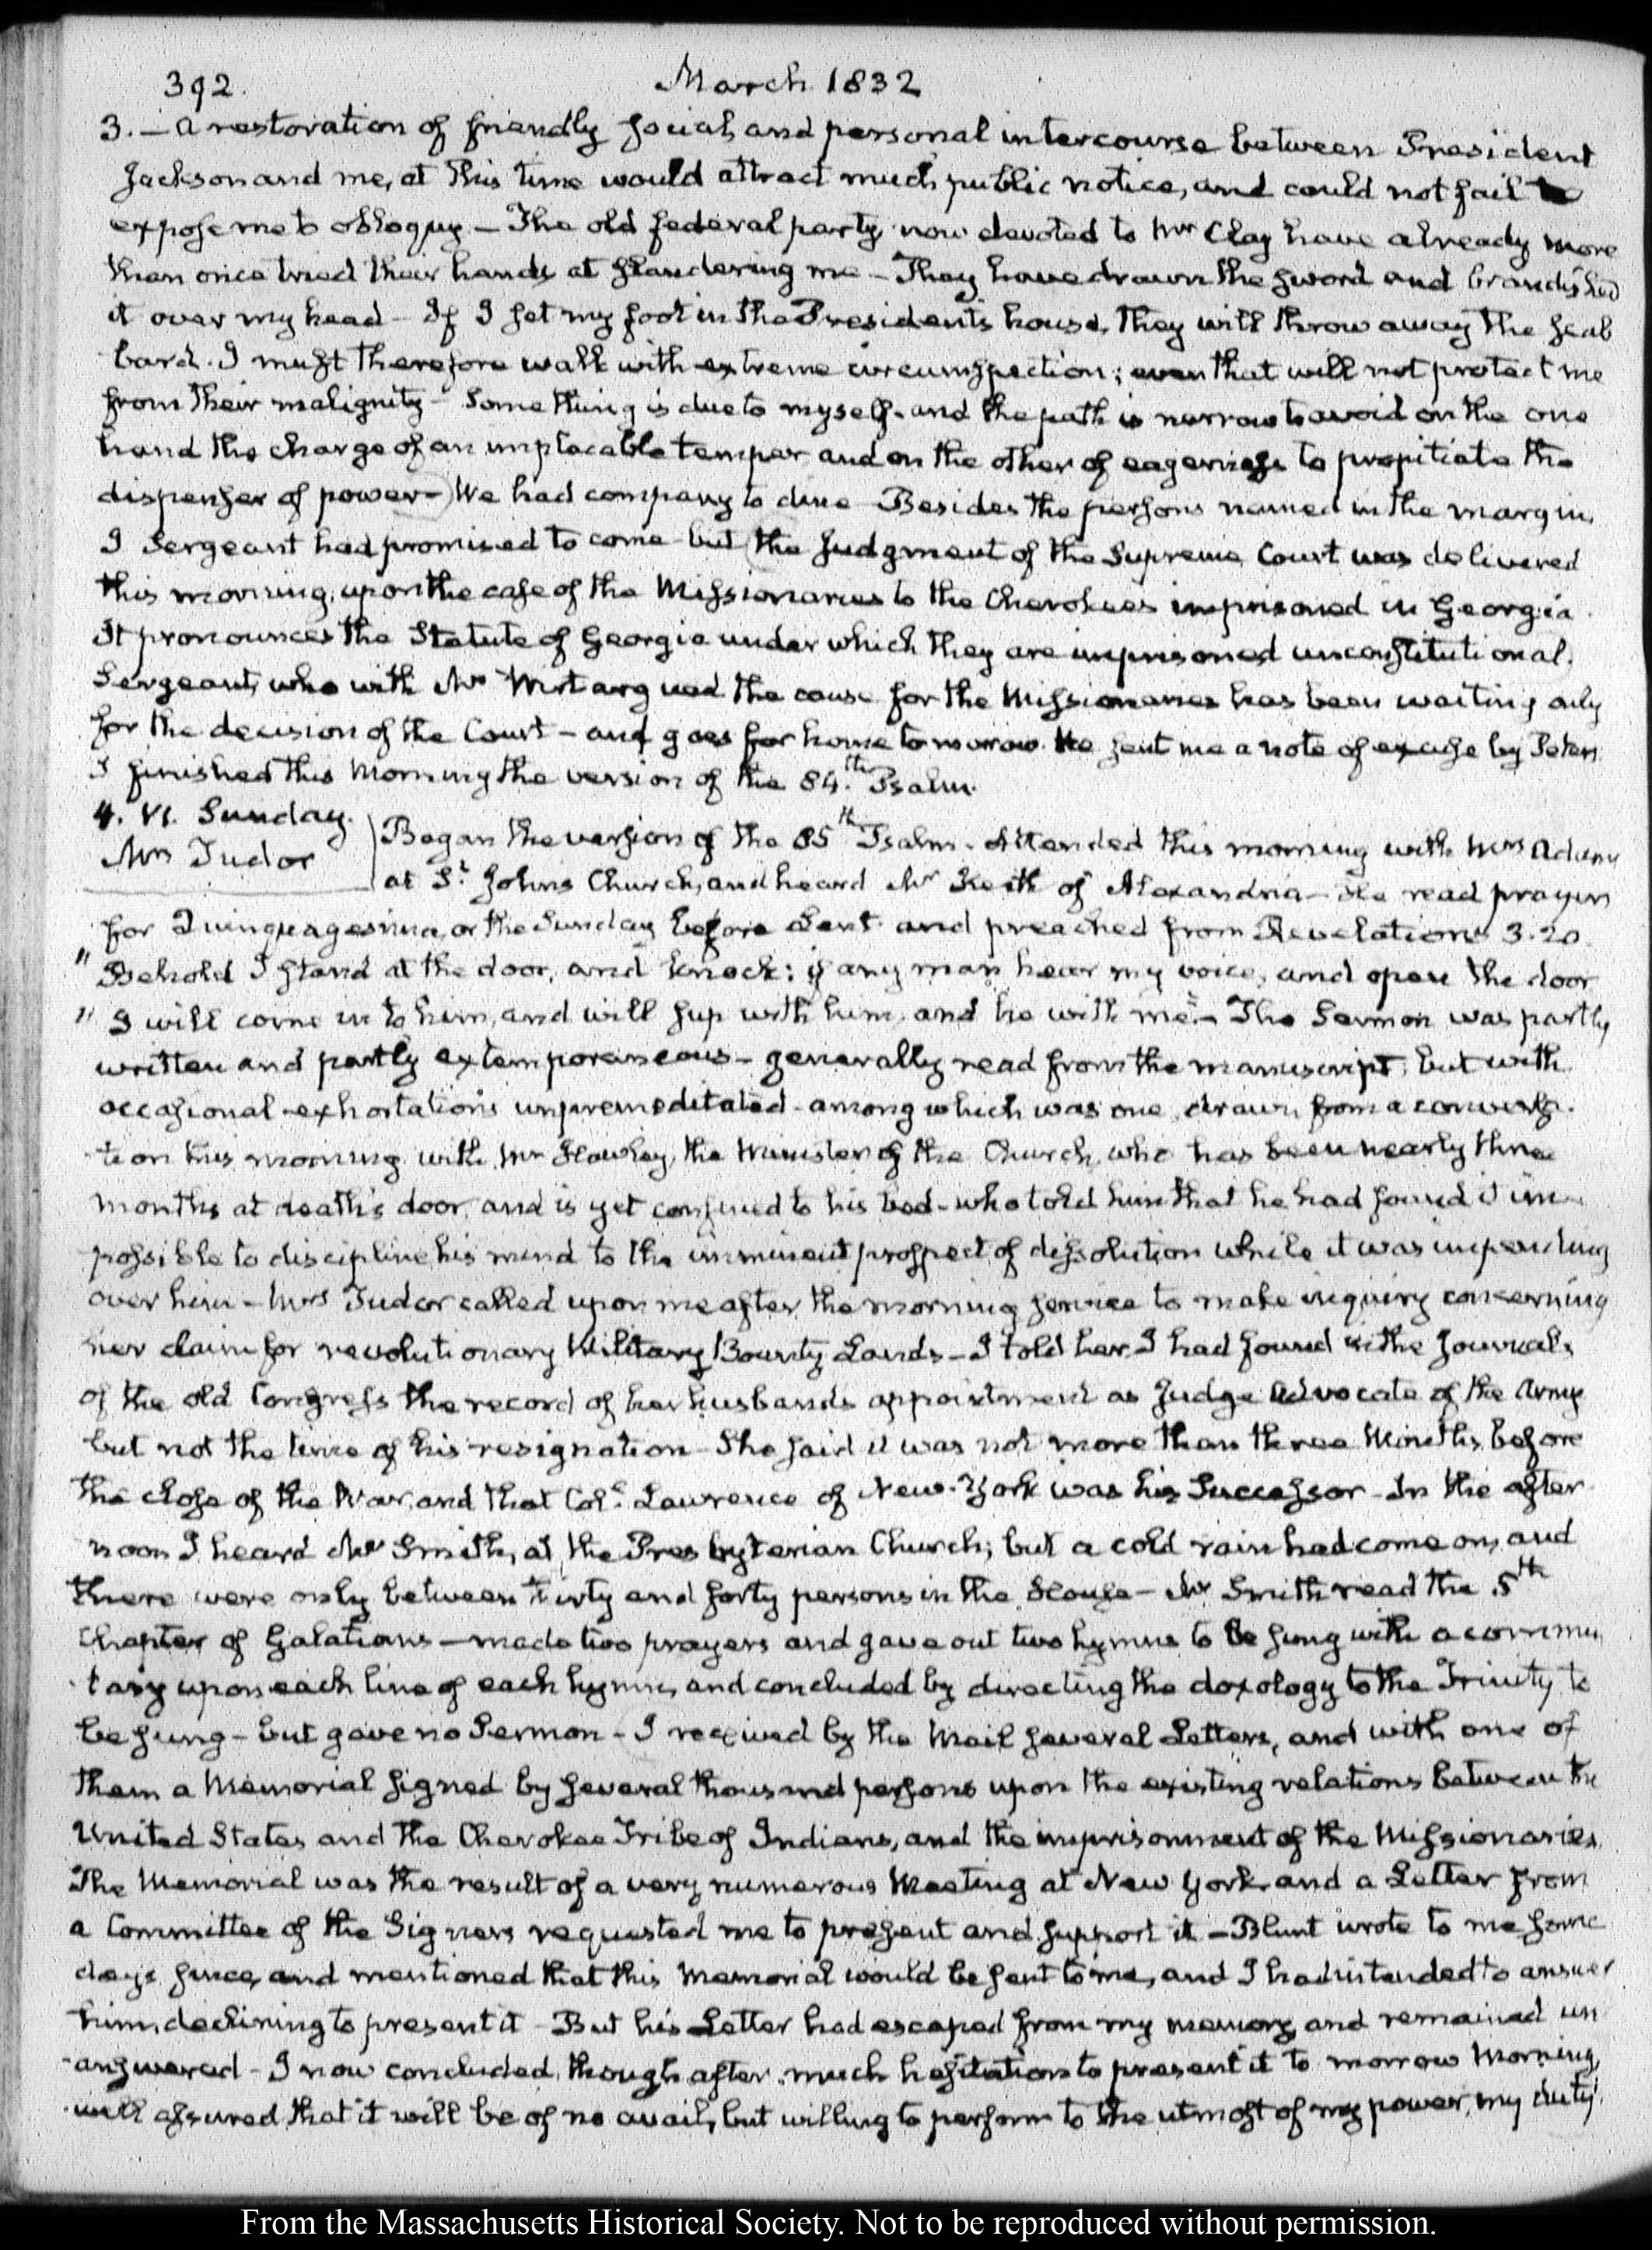 392.
March 1832
3. — A restoration of friendly social, and personal intercourse between President
Jackson and me, at this time would attract much public notice, and could not fail to
expose me to obloquy — The old federal party now devoted to Mr Clay have already more
than once tried their hands at slandering me — They have drawn the sword and brandished
it over my head — If I set my foot in the President's house, they will throw away the scab
bard. I must therefore walk with extreme circumspection; even that will not protect me
from their malignity — Something is due to myself - and the path is narrow to avoid on the one
hand the charge of an implacable temper, and on the other of eagerness to propitiate the
dispenser of power — We had company to dine — Besides the persons named in the margin,
J Sergeant had promised to come but the judgment of the Supreme Court was delivered
this morning, upon the case of the Missionaries to the Cherokees imprisoned in Georgia
It pronounces the Statute of Georgia under which they are imprisoned unconstitutional.
Sergeant, who with Mr Wirt argued the cause for the Missionaries has been waiting only
for the decision of the Court — and goes for home to morrow. He sent me a note of excuse by Peter.
I finished this Morning the version of the 84.th Psalm.
4. VI. Sunday.
Mrs Tudor
Began the version of the 85th Psalm. Attended this morning with Mrs Adams
at St Johns Church, and heard Mr Keith of Alexandria — He read prayers
for Quinquagesima, or the Sunday before Lent and preached from Revelations 3.20
" Behold I stand at the door, and knock: if any man hear my voice, and open the door
" I will come in to him, and will sup with him, and he with me." — The Sermon was partly
written and partly extemporaneous — generally read from the manuscript, but with
occasional exhortations unpremeditated - among which was one, drawn from a conversa-
tion this morning with Mr Hawley, the Minister of the Church, who has been nearly three
months at death's door, and is yet confined to his bed - who told him that he had found it im-
possible to discipline his mind to the imminent prospect of dissolution while it was impending
over him — Mrs Tudor called upon me after the morning service to make inquiry concerning
her claim for revolutionary Military Bounty Lands — I told her I had found in the Journals
of the old Congress the record of her husbands appointment as Judge Advocate of the Army
but not the time of his resignation — She said it was not more than three Months before
the close of the War, and that Col. Lawrence of New-York was his Successor — In the after
noon I heard Mr Smith, at the Presbyterian Church; but a cold rain had come on, and
there were only between thirty and forty persons in the House — Mr Smith read the 5th
Chapter of Galatians — made two prayers and gave out two hymns to be sung with a commen
tary upon each line of each hymn, and concluded by directing the doxology to the Trinity to
be sung — but gave no Sermon — I received by the Mail several Letters, and with one of
them a Memorial signed by several thousand persons upon the existing relations between the
United States and the Cherokee Tribe of Indians, and the imprisonment of the Missionaries.
The Memorial was the result of a very numerous Meeting at New York, and a Letter from
a Committee of the Signers requested me to present and support it — Blunt wrote to me some
days since, and mentioned that this Memorial would be sent to me, and I had intended to answer
him, declining to present it — But his Letter had escaped from my memory and remained un
answered — I now concluded, though after much hesitation to present it to morrow Morning,
well assured that it will be of no avail, but willing to perform to the utmost of my power, my duty.
From the Massachusetts Historical Society. Not to be reproduced without permission.